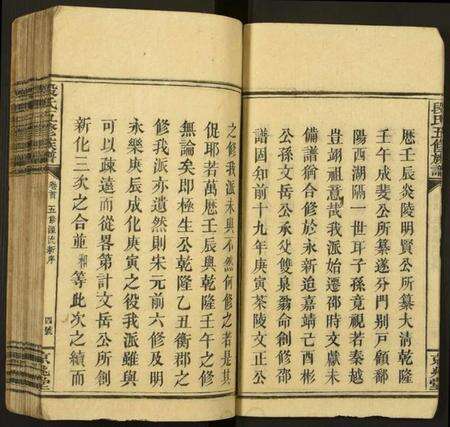 段氏五修族譜
厯壬辰炎陵明賢公所纂大清乾隆
壬午成斐公所纂遂分門别戸顧鄱
陽西湖隔一世耳子孫竟視若秦越
豈翊祖意哉我派始遷邵時文獻未
備譜猶合修於永新追嘉靖己酉彬
公孫文岳公承父雙泉翁命創修邵
譜固知前十九年庚寅茶陵文正公
之修我派未與不然何修之若是其
促耶若萬厯壬辰與乾隆壬午之修
無論矣即極生公乾隆乙丑衡郡之
修我派亦遺然則宋元前六修及明
永樂庚辰成化庚寅之役我派雖與
可以疎遠而從畧第計文岳公所創
新化三次之合並
等此次之績而
段氏五修族譜
卷首
五修源流新序
四號
京兆堂